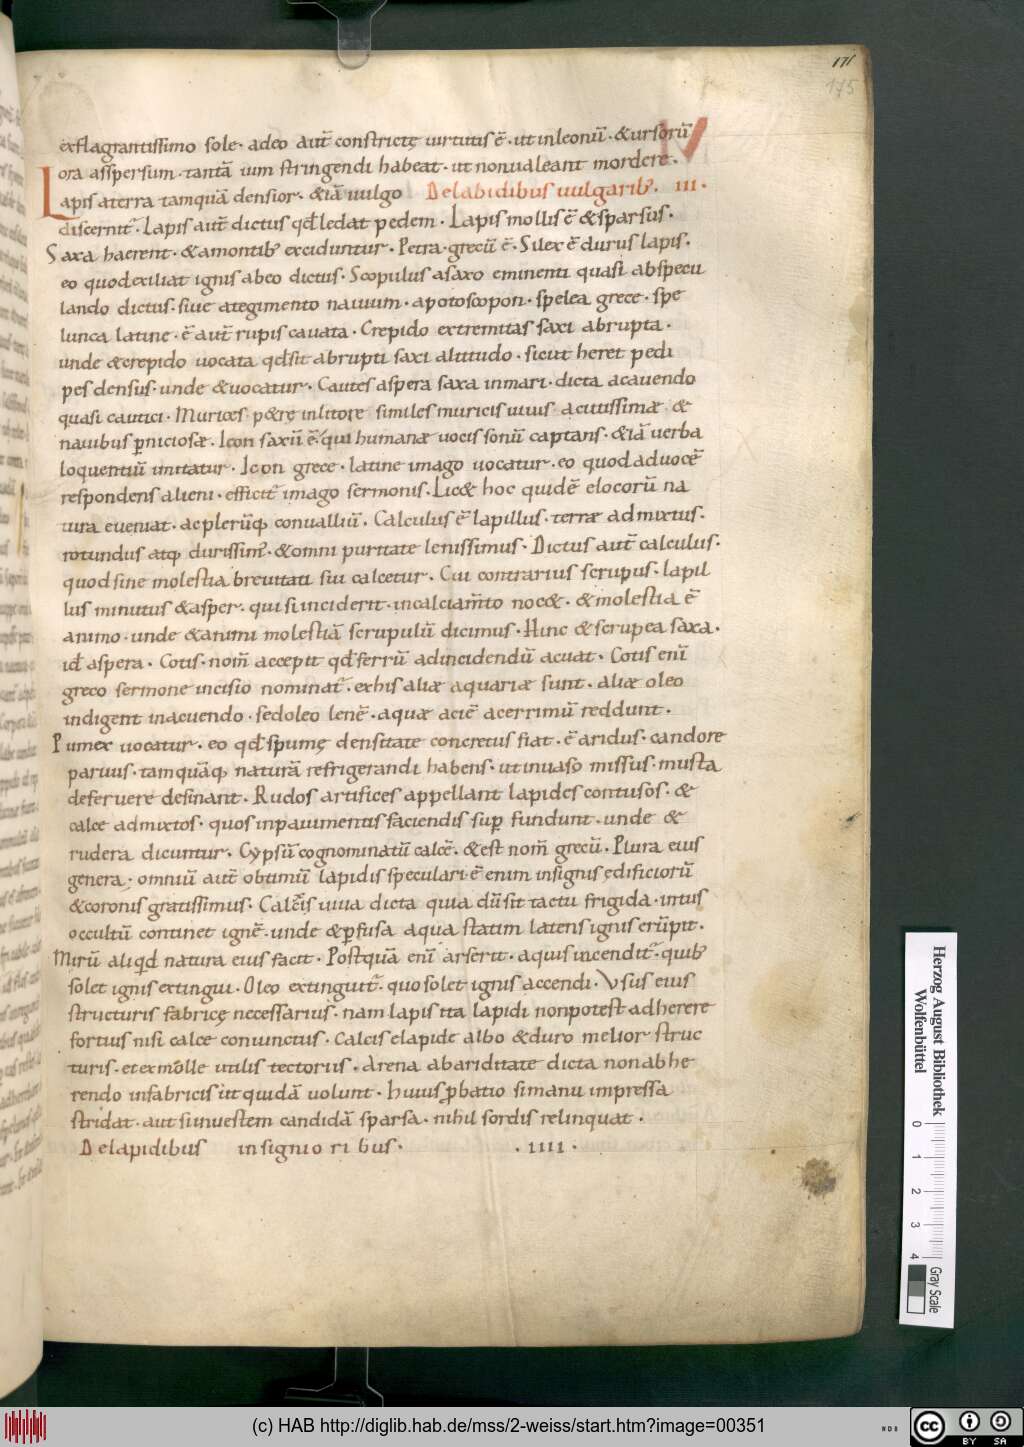 171
175
exflagrantissimo sole · adeo aut̄ constrictę uirtutis ē · ut inleonū · & ursorū
ora asspersum · tantā uim stringendi habeat · ut nonualeant mordere ·
Lapis aterra tamquā densior · & iā uulgo Delabidibus uulgarib; · III ·
discernit᷑ · Lapis aut̄ dictus qđ ledat pedem · Lapis mollis ē & sparsus ·
Saxa haerent · & amontib; exciduntur · Petra · grecū ē · Silex ē durus lapis ·
eo quodexiliat ignis abeo dictus · Scopulus asaxo eminenti quasi abspecu
lando dictus · siue ategimento nauium · apotoscopon · spelea grece · spe
lunca latine · ē aut̄ rupis cauata · Crepido extremitas saxi abrupta ·
unde & crepido uocata qđ sit abrupti saxi altitudo · sicut heret pedi
pes densus · unde & uocatur · Cautes aspera saxa inmari · dicta acauendo
quasi cautici · Murices p&rę inlitore similes muricis uiuis acutissimæ &
nauibus ꝑniciosæ · Icon saxū ē · qui humanæ uocis sonū captans · & iā uerba
loquentiū imitatur · Icon grece · latine imago uocatur · eo quod aduocē
respondens alieni · efficit᷑ imago sermonis · Lic& hoc quidē elocorū na
tura eueniat · ac plerūq; conualliū · Calculus ē lapillus · terræ admixtus ·
rotundus atq; durissim; · & omni puritate lenissimus · Dictus aut̄ calculus ·
quod sine molestia breuitati sui calcetur · Cui contrarius scrupus · lapil
lus minutus & asper · qui si inciderit · incalciam̄to noc& · & molestia ē
animo · unde & animi molestiā scrupulū dicimus · Hinc & scrupea saxa ·
id aspera · Cotis · nom̄ accepit qđ ferrū adincidendū acuat · Cotis enī
greco sermone incisio nominat᷑ · exhis aliæ aquariæ sunt · aliæ oleo
indigent inacuendo · sedoleo lenē · aquæ aciē acerrimū reddunt ·
Pumex uocatur · eo qđ spumę densitate concretus fiat · ē aridus · candore
paruus · tamquāq; naturā refrigerandi habens · ut inuaso missus · musta
deferuere desinant · Rudos artifices appellant lapides contusos · &
calce admixtos · quos inpauimentis faciendis suꝑ fundunt · unde &
rudera dicuntur · Gypsū cognominatū calcē · & est nom̄ grecū · Plura eius
genera; omniū aut̄ obtimū lapidis speculari · ē enim insignis ędificiorū
& coronis gratissimus · Calcis uiua dicta quia dū sit tactu frigida · intus
occultū continet ignē · unde & ꝑfusa aqua statim latens ignis erūpit ·
Mirū aliqđ natura eius facit · Postquā enī arserit · aquis incendit᷑ · quib;
solet ignis extingui · Oleo extinguit᷑ · quo solet ignis accendi · Vsus eius
structuris fabricę necessarius · nam lapis ita lapidi nonpotest adherere
fortius nisi calce coniunctus · Calcis elapide albo & duro melior struc
turis · et ex molle utilis tectoriis · Arena abariditate dicta nonabhe
rendo infabricis ut quidā uolunt · huius ꝓbatio simanu impressa
stridat · aut si inuestem candidā sparsa · nihil sordis relinquat ·
Delapidibus insignioribus · · IIII ·
Herzog August Bibliothek
Wolfenbüttel
0 1 2 3 4
Gray Scale
(c) HAB http://diglib.hab.de/mss/2-weiss/start.htm?image=00351
WDB
cc BY SA